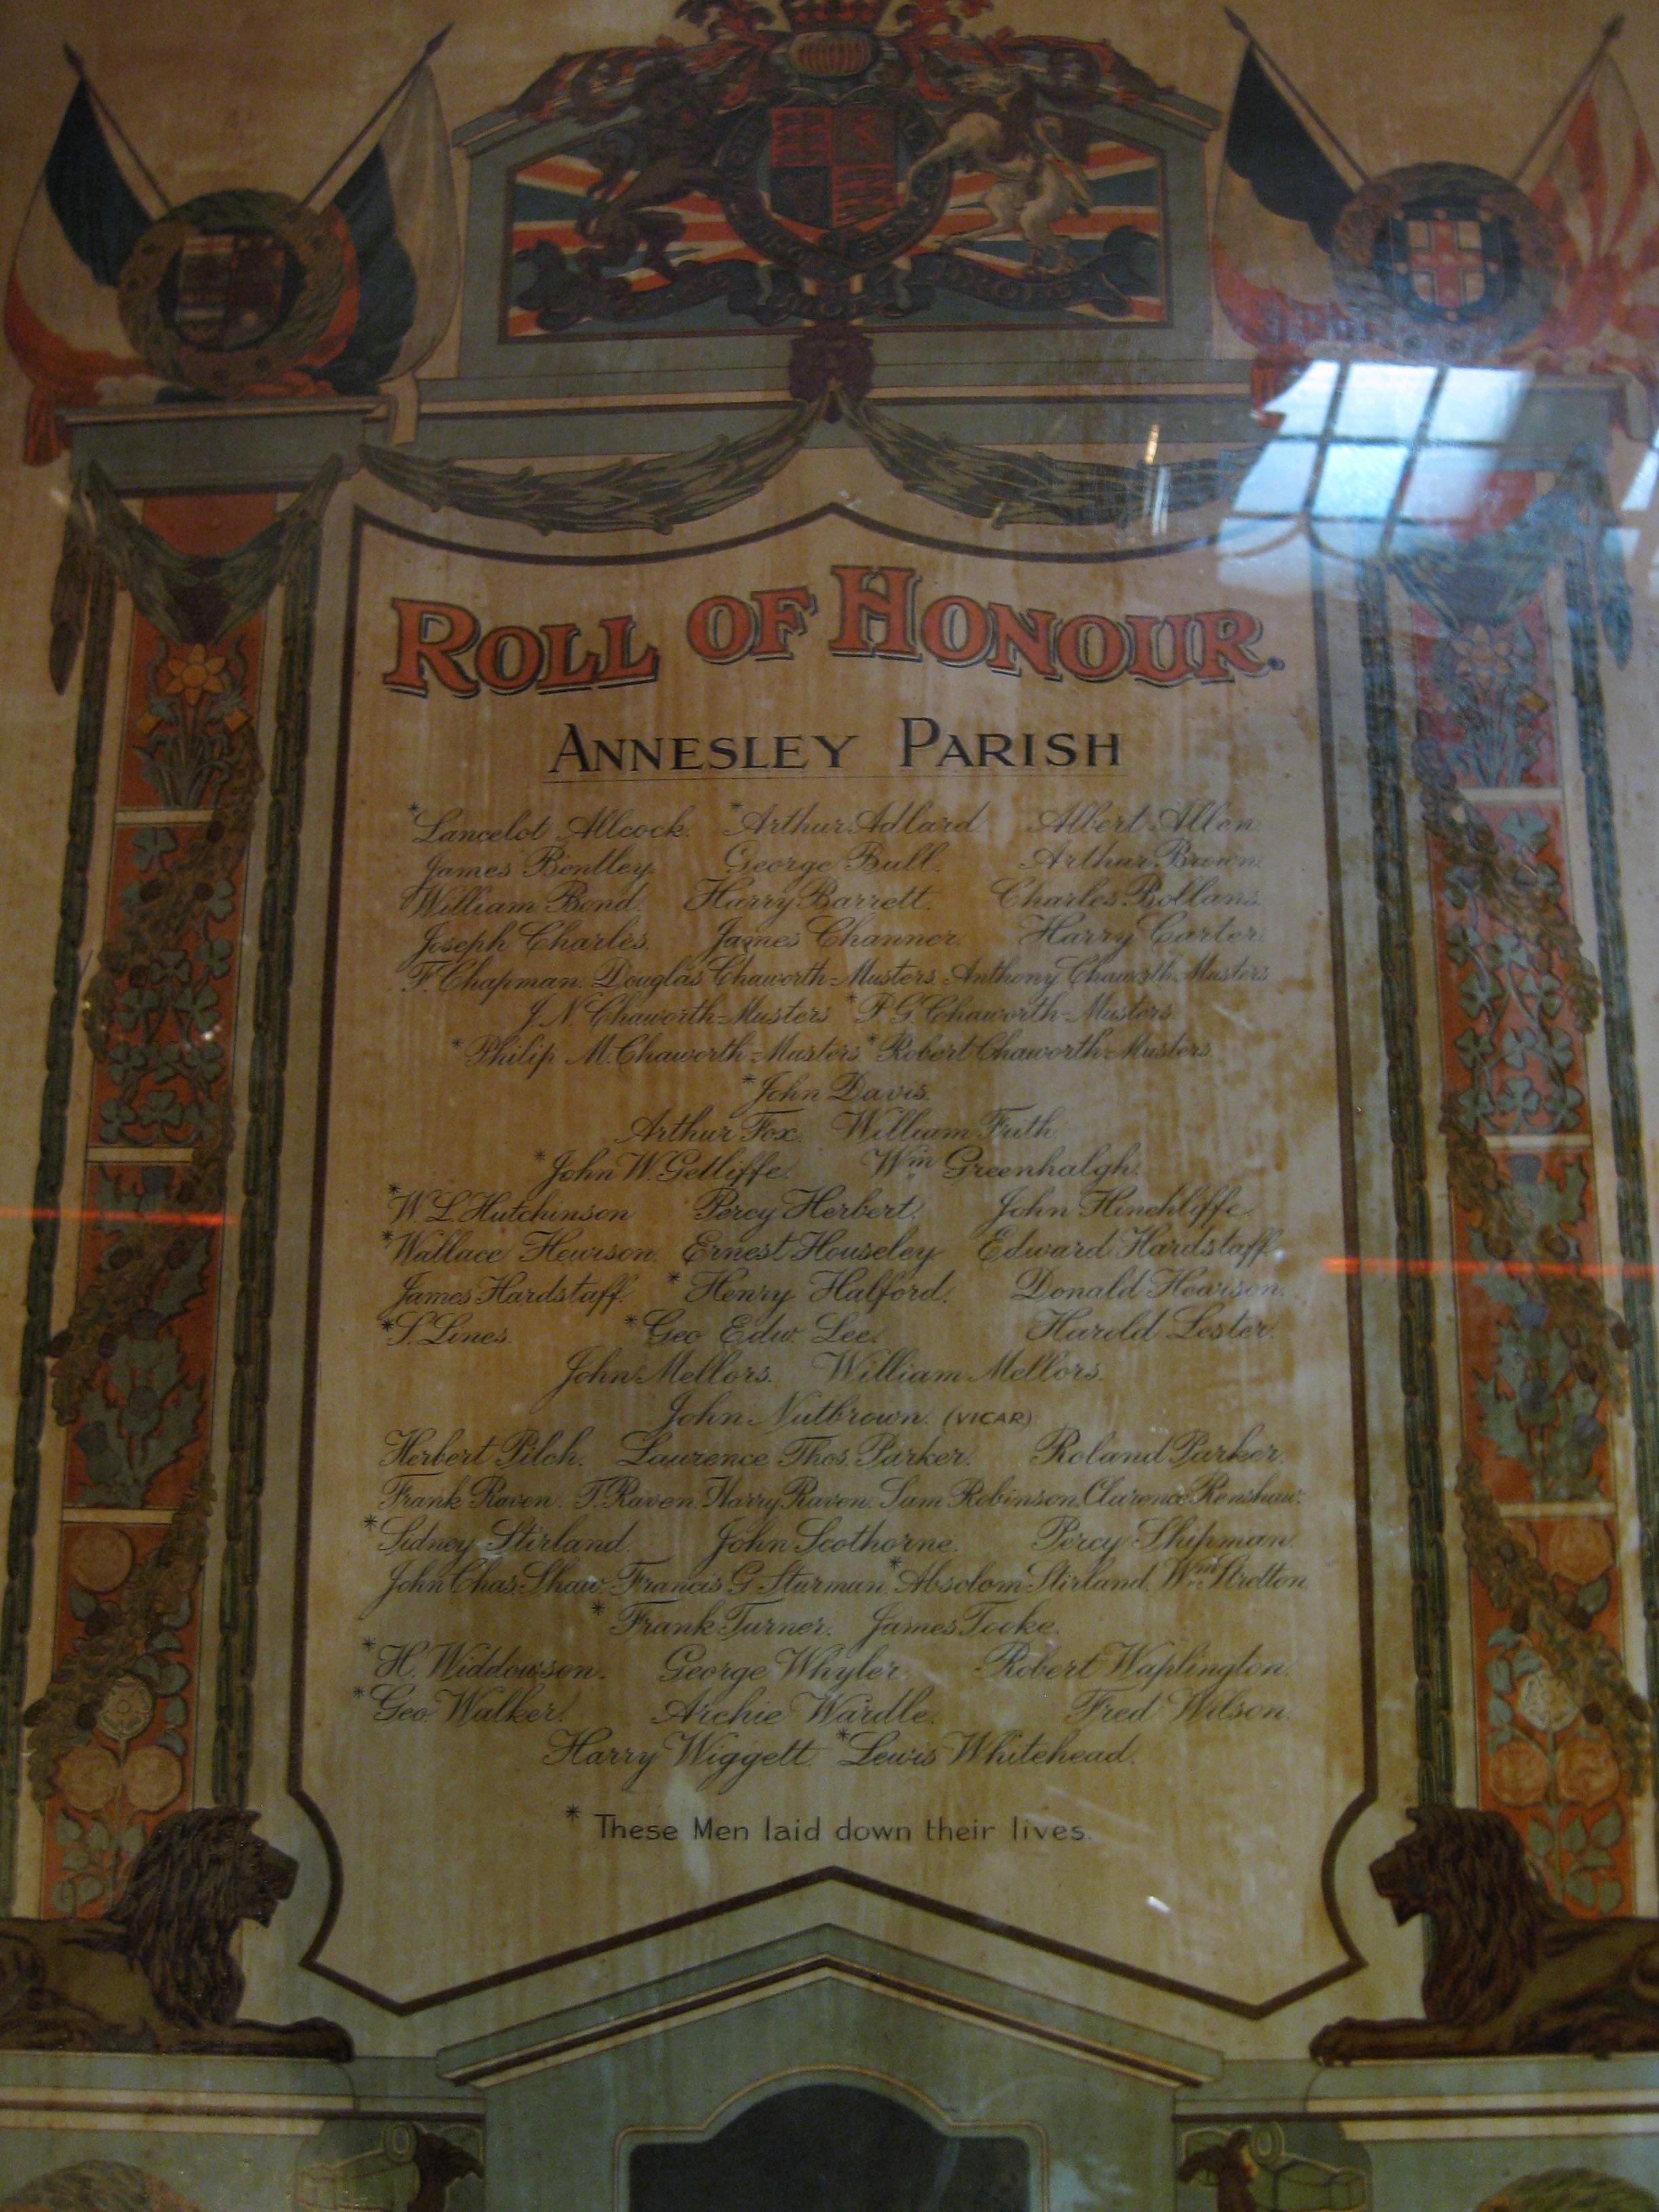 ROLL OF HONOUR.
ANNESLEY PARISH
*Lancelot Allcock. *Arthur Adlard Albert Allen.
James Bentley. George Bull. Arthur Brown.
William Bond. Harry Barrett. Charles Bollans.
Joseph Charles. James Channer. Harry Carter.
F. Chapman. Douglas Chaworth-Musters. Anthony Chaworth-Musters
J. N. Chaworth-Musters *P. G. Chaworth-Musters.
*Philip M. Chaworth-Musters *Robert Chaworth-Musters.
*John Davis.
Arthur Fox. William Frith.
*John W. Getliffe. Wm Greenhalgh.
*W. L. Hutchinson Percy Herbert. John Hinchliffe
*Wallace Hewison. Ernest Houseley Edward Hardstaff.
James Hardstaff. *Henry Halford. Donald Hewison.
*S. Lines. *Geo Edw. Lee. Harold Lester.
John Mellors. William Mellors.
John Nutbrown. (VICAR)
Herbert Pilch. Laurence Thos. Parker. Roland Parker.
Frank Raven. T. Raven. Harry Raven. Sam Robinson. Clarence Renshaw.
*Sidney Stirland. John Scothorne. Percy Shipman.
John Chas. Shaw. Francis G. Sturman *Absolom Stirland. Wm Stretton
*Frank Turner. James Tooke.
*H. Widdowson. George Whyler. Robert Waplington.
*Geo. Walker. Archie Wardle. Fred Wilson.
Harry Wiggett. *Lewis Whitehead.
* These Men laid down their lives.